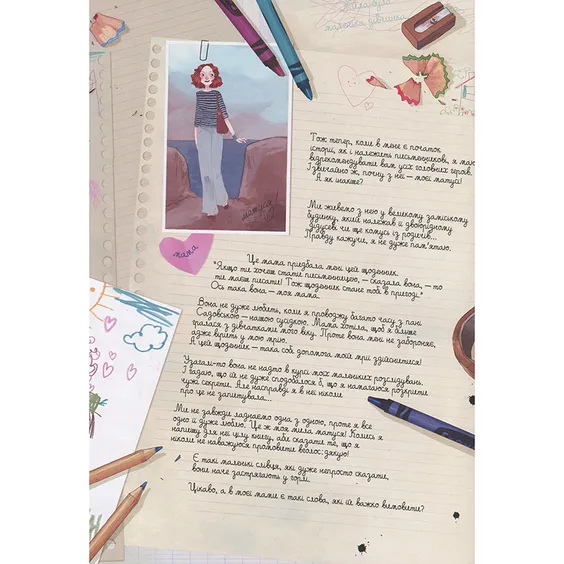 була
маленька дівчинка
Тож тепер, коли в мене є початок
історії, як і належить письменникові, я маю
відрекомендувати вам усіх головних героїв.
І звичайно ж, почну з неї – моєї матусі!
А як інакше?
матуся!
Ми живемо з нею у великому заміському
будинку, який належав її двоюрідному
дідусеві чи ще комусь із родичів...
Правду кажучи, я не дуже пам'ятаю.
мама
Це мама придбала мені цей щоденник.
"Якщо ти хочеш стати письменницею, – сказала вона, – то
ти маєш писати! Тож щоденник стане тобі в пригоді."
Ось така вона – моя мама.
Вона не дуже любить, коли я проводжу багато часу з пані
Садовською – нашою сусідкою. Мама хотіла, щоб я більше
гралася з дівчатками мого віку. Проте вона мені не забороняє,
адже вірить у мою мрію.
А цей щоденник – така собі допомога моїй мрії здійснитися!
Узагалі-то вона не надто в курсі моїх маленьких розслідувань.
І гадаю, що їй не дуже сподобалося б, що я намагаюся розкрити
чужі секрети. Але насправді я в неї ніколи
про це не запитувала...
Ми не завжди ладнаємо одна з одною, проте я все
одно її дуже люблю. Це ж моя мила матуся! Колись я
напишу для неї цілу книгу, аби сказати те, що я
ніколи не наважуюся промовити вголос: дякую!
Є такі маленькі слівця, які дуже непросто сказати,
вони наче застрягають у горлі.
Цікаво, а в моєї мами є такі слова, які їй важко вимовити?